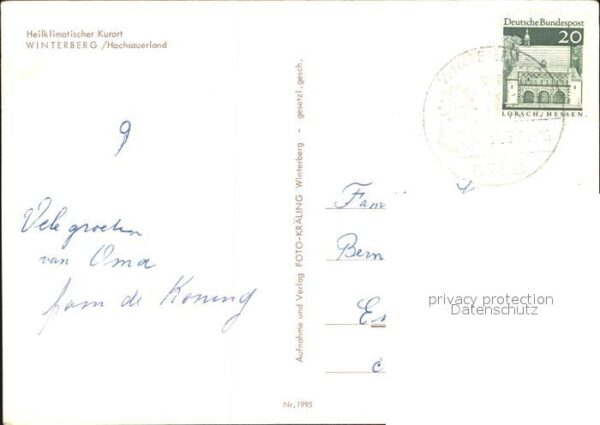 Heilklimatischer Kurort
WINTERBERG /Hochsauerland
9
Vele groeten
van Oma
fam de Koning
Aufnahme und Verlag FOTO-KRÄLING Winterberg - gesetzl. gesch.
Nr. 1995
Deutsche Bundespost
20
LORSCH/HESSEN
5788
Fam
Bern
Es
privacy protection
Datenschutz